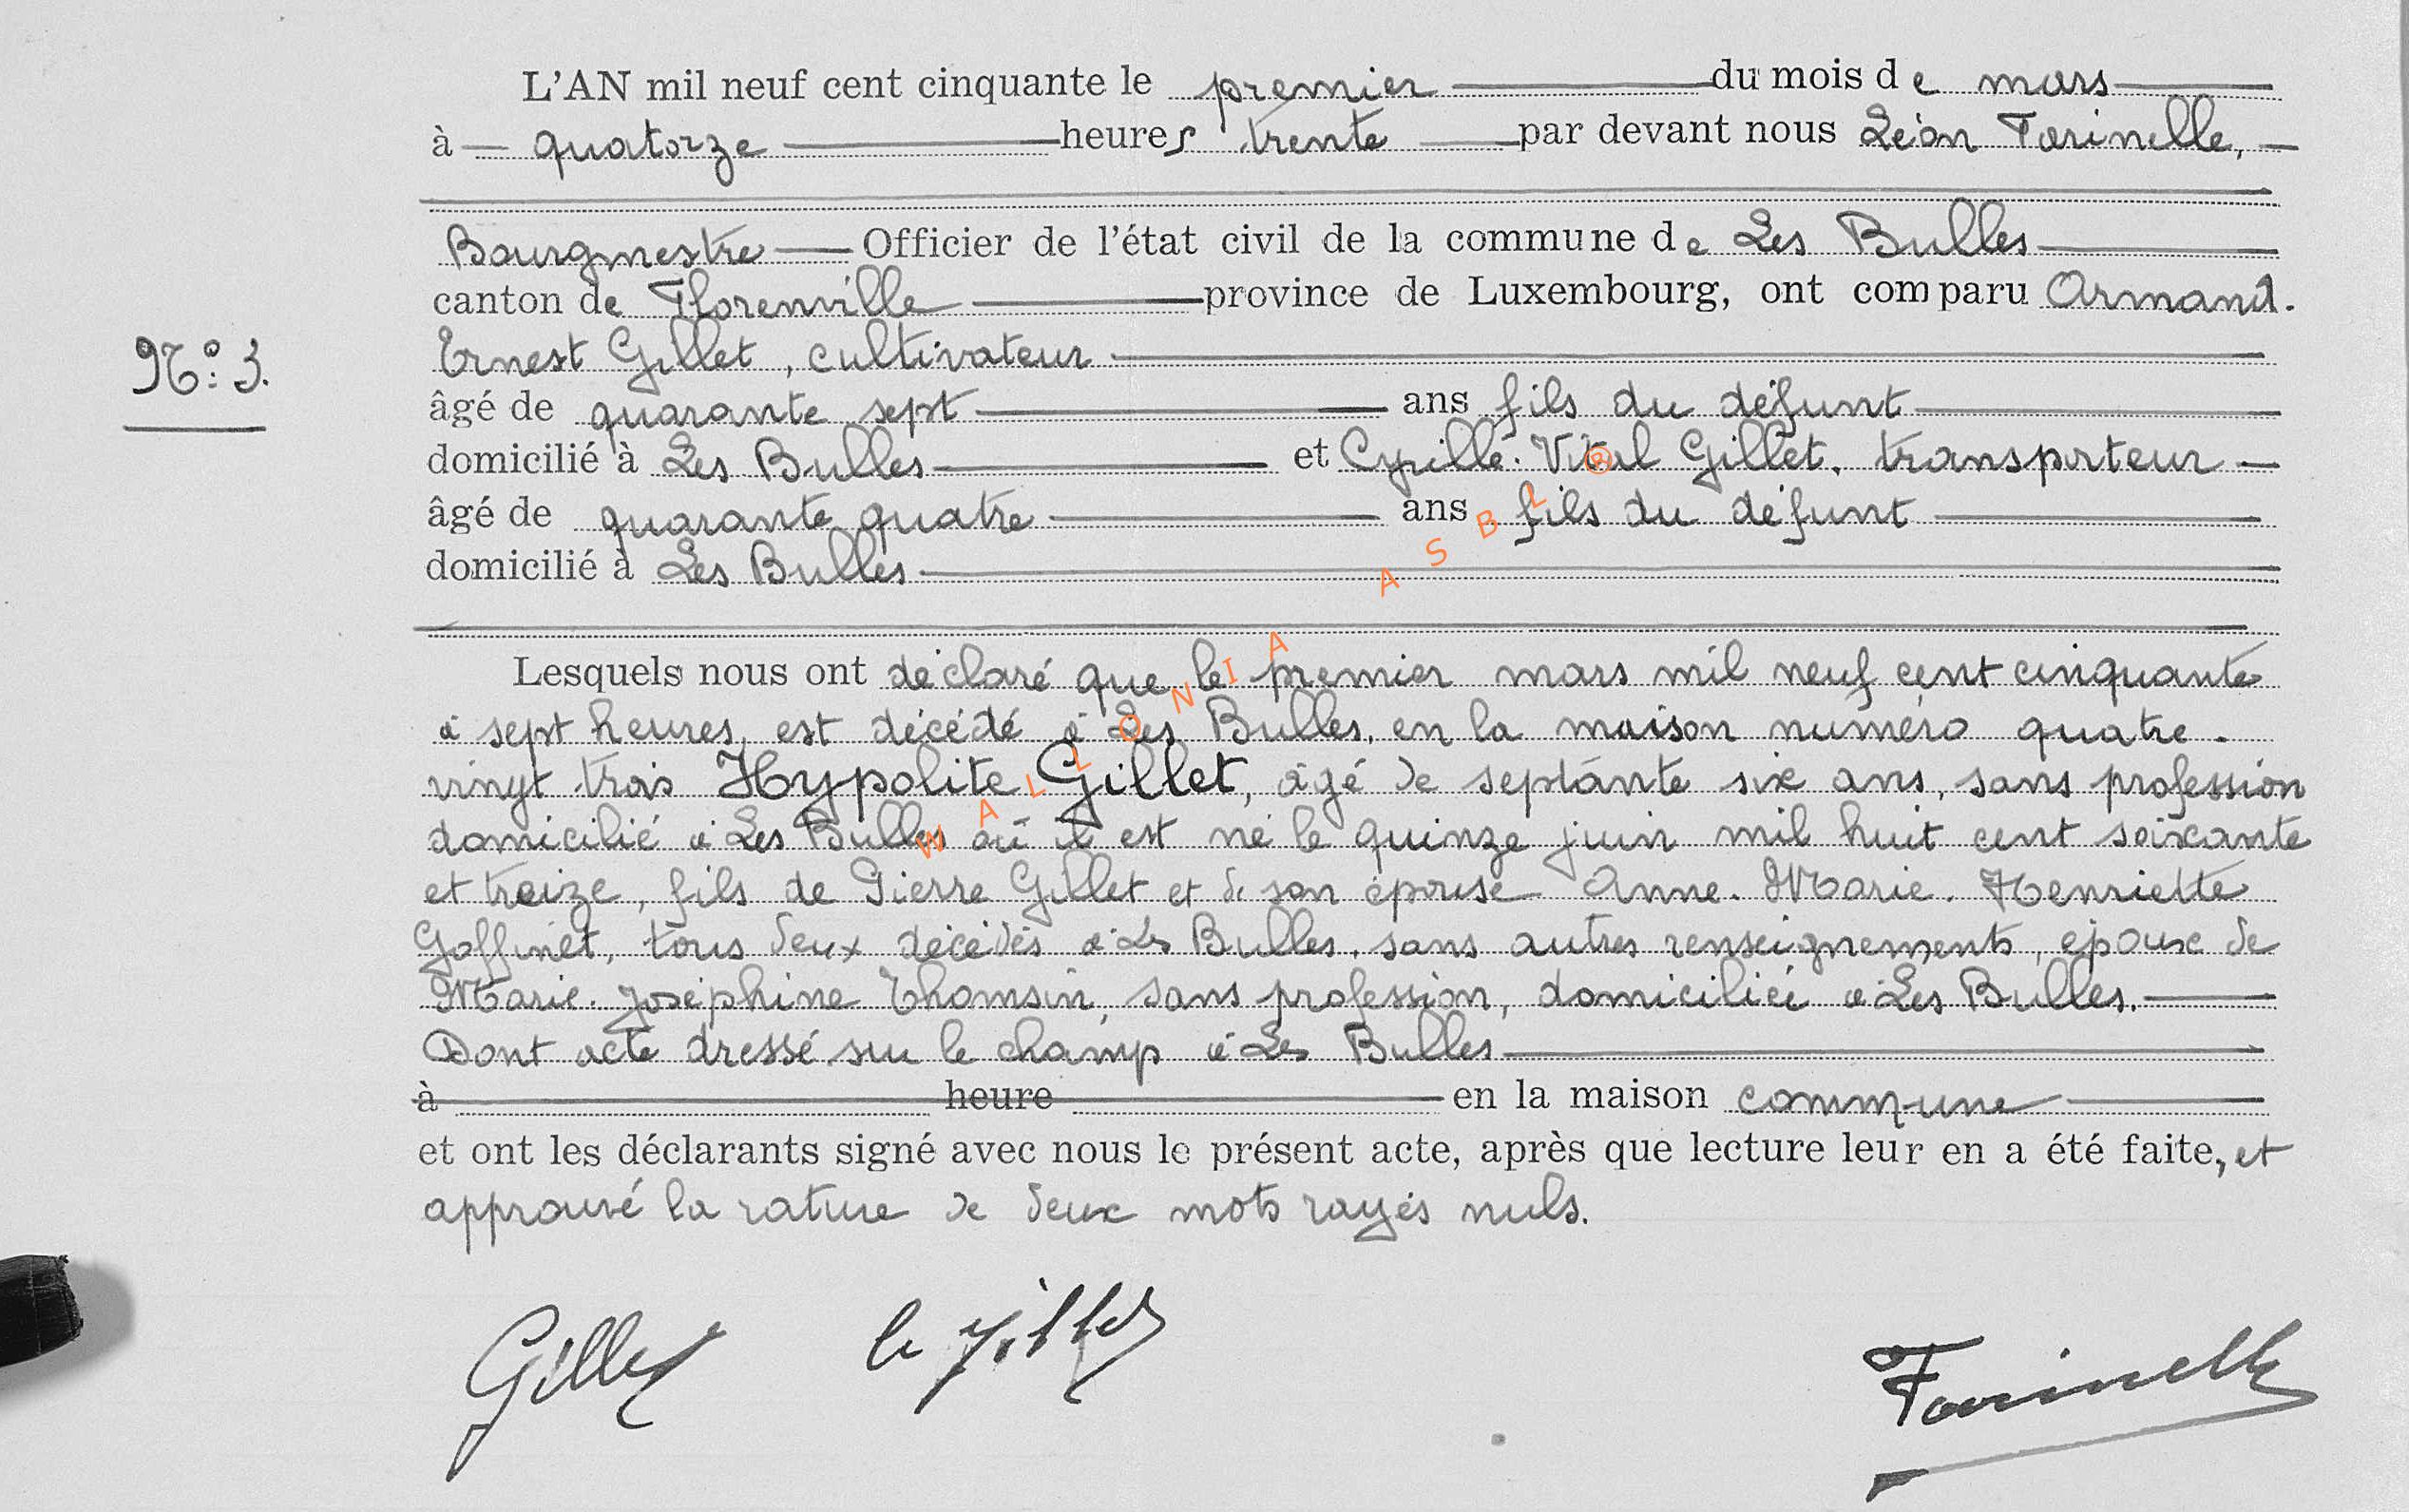 L'AN mil neuf cent cinquante le premier du mois de mars
à quatorze heures trente par devant nous Léon Farinelle,
Bourgmestre Officier de l'état civil de la commune de Les Bulles
canton de Florenville province de Luxembourg, ont comparu Armand.
N°: 3.
Ernest Gillet, cultivateur
âgé de quarante sept ans fils du défunt
domicilié à Les Bulles et Cyrille. Vital Gillet, transporteur
âgé de quarante quatre ans fils du défunt
domicilié à Les Bulles
Lesquels nous ont déclaré que le premier mars mil neuf cent cinquante
à sept heures, est décédé à Les Bulles, en la maison numéro quatre-
vingt trois Hypolite Gillet, âgé de septante six ans, sans profession
domicilié à Les Bulles où il est né le quinze juin mil huit cent soixante
et treize, fils de Pierre Gillet et de son épouse Anne. Marie. Henriette
Goffinet, tous deux décédés à Les Bulles, sans autres renseignements, époux de
Marie. Joséphine Thomsin, sans profession, domiciliée à Les Bulles.
Dont acte dressé sur le champ à Les Bulles
à heure en la maison commune
et ont les déclarants signé avec nous le présent acte, après que lecture leur en a été faite, et
approuvé la rature de deux mots rayés nuls.
Gillet Gillet Farinelle
WALLONIA ASBL ®